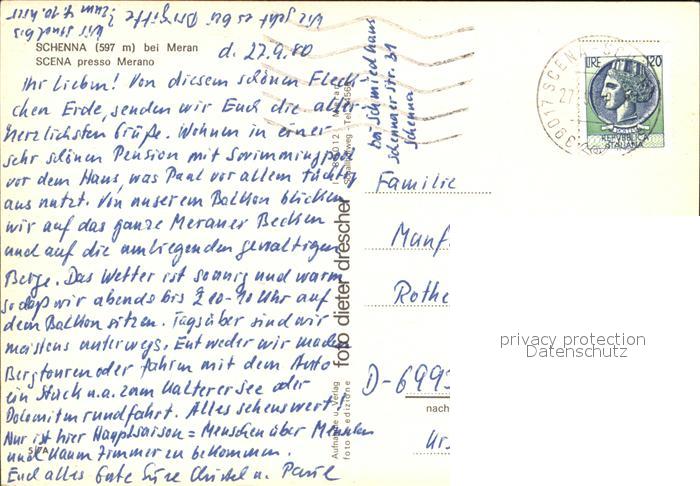 SCHENNA (597 m) bei Meran
SCENA presso Merano
d. 27.9.80
Ihr Lieben! Von diesem schönen Fleck-
chen Erde, senden wir Euch die aller-
herzlichsten Grüße. Wohnen in einer
sehr schönen Pension mit Swimmingpool
vor dem Haus, was Paul vor allem tüchtig
aus nutzt. Von unserem Balkon blicken
wir auf das ganze Meraner Becken
und auf die umliegenden gewaltigen
Berge. Das Wetter ist sonnig und warm
so daß wir abends bis 10 Uhr auf
dem Balkon sitzen. Tagsüber sind wir
meistens unterwegs. Entweder wir machen
Bergtouren oder fahren mit dem Auto
ein Stück u.a. zum Kalterer See oder
Dolomitenrundfahrt. Alles sehenswert!
Nur ist hier Hauptsaison = Menschen über Menschen
und kaum Zimmer zu bekommen.
Euch alles Gute Eure Christel u. Paul
wir sind bis
zum 4.10. hier
bei Schmiedhaus
Schennaer str. 31
Schenna
foto dieter drescher
Aufnahme u. Verlag
foto e edizione
Familie
Manf.
Rothe
D-699
nach
Urs
LIRE 120
REPVBBLICA
ITALIANA
39017 SCENA
27
privacy protection
Datenschutz